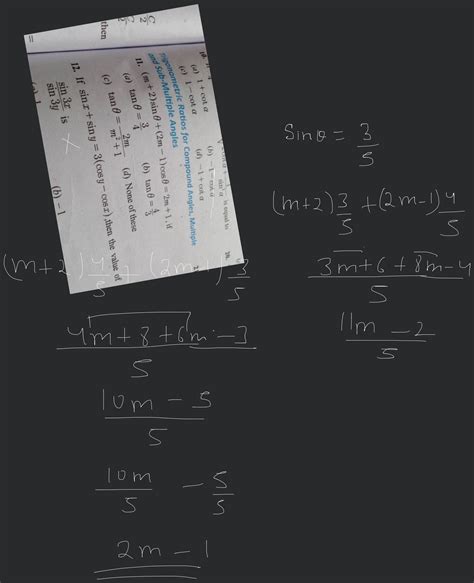 then
=
(a) 1 + cot α
(c) 1 − cot α
(d) −1 + cot α
is equal to
Trigonometric Ratios for Compound Angles, Multiple and Sub-Multiple Angles
11. (m + 2) sin θ + (2m − 1) cos θ = 2m + 1, if
(a) tan θ = 3/4
(b) tan θ = 4/3
(c) tan θ = 2m/(m² + 1)
(d) None of these
12. If sin x + sin y = 3(cos y − cos x), then the value of
sin 3x / sin 3y is
(b) −1
sinθ = 3/5
(m+2) 3/5 + (2m-1) 4/5
3m+6+8m-4 / 5
11m - 2 / 5
(m+2) 4/5 + (2m-1) 3/5
4m+8+6m-3 / 5
10m - 5 / 5
10m/5 - 5/5
2m - 1